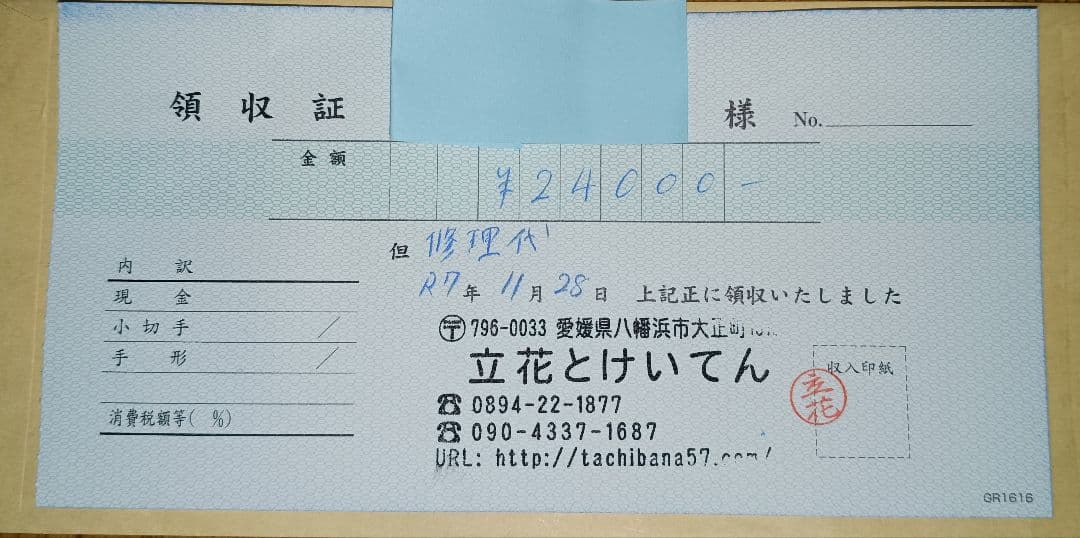 領収証 様 No.
金額 ¥24000-
但 修理代
R7年11月28日 上記正に領収いたしました
内訳
現金
小切手 /
手形 /
消費税額等( %)
〒796-0033 愛媛県八幡浜市大正町
立花とけいてん
☎ 0894-22-1877
☎ 090-4337-1687
URL: http://tachibana57.com/
収入印紙
立花
GR1616